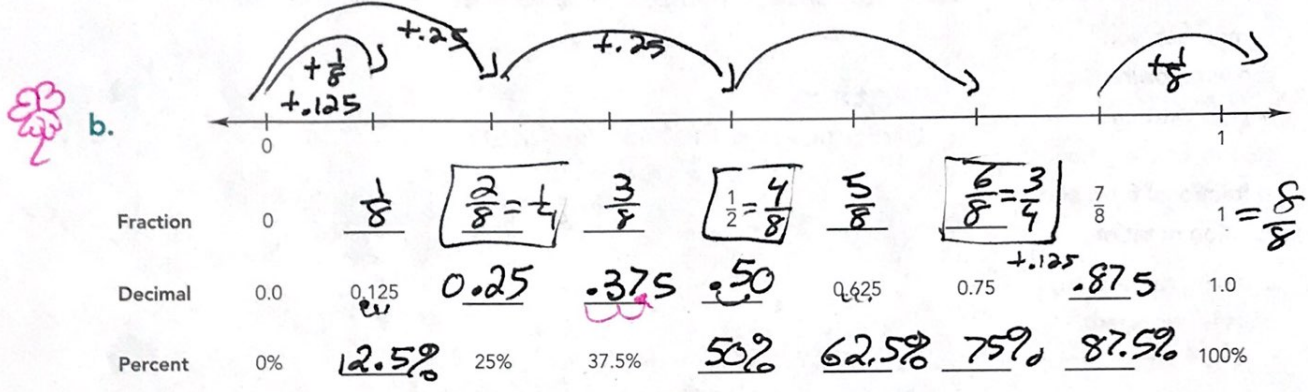 +.25 +.25
+1/8 +1/8
+.125
b.
0 1
Fraction 0 1/8 2/8 = 1/4 3/8 1/2 = 4/8 5/8 6/8 = 3/4 7/8 1 = 8/8
+.125
Decimal 0.0 0.125 0.25 .375 .50 0.625 0.75 .875 1.0
Percent 0% 12.5% 25% 37.5% 50% 62.5% 75% 87.5% 100%